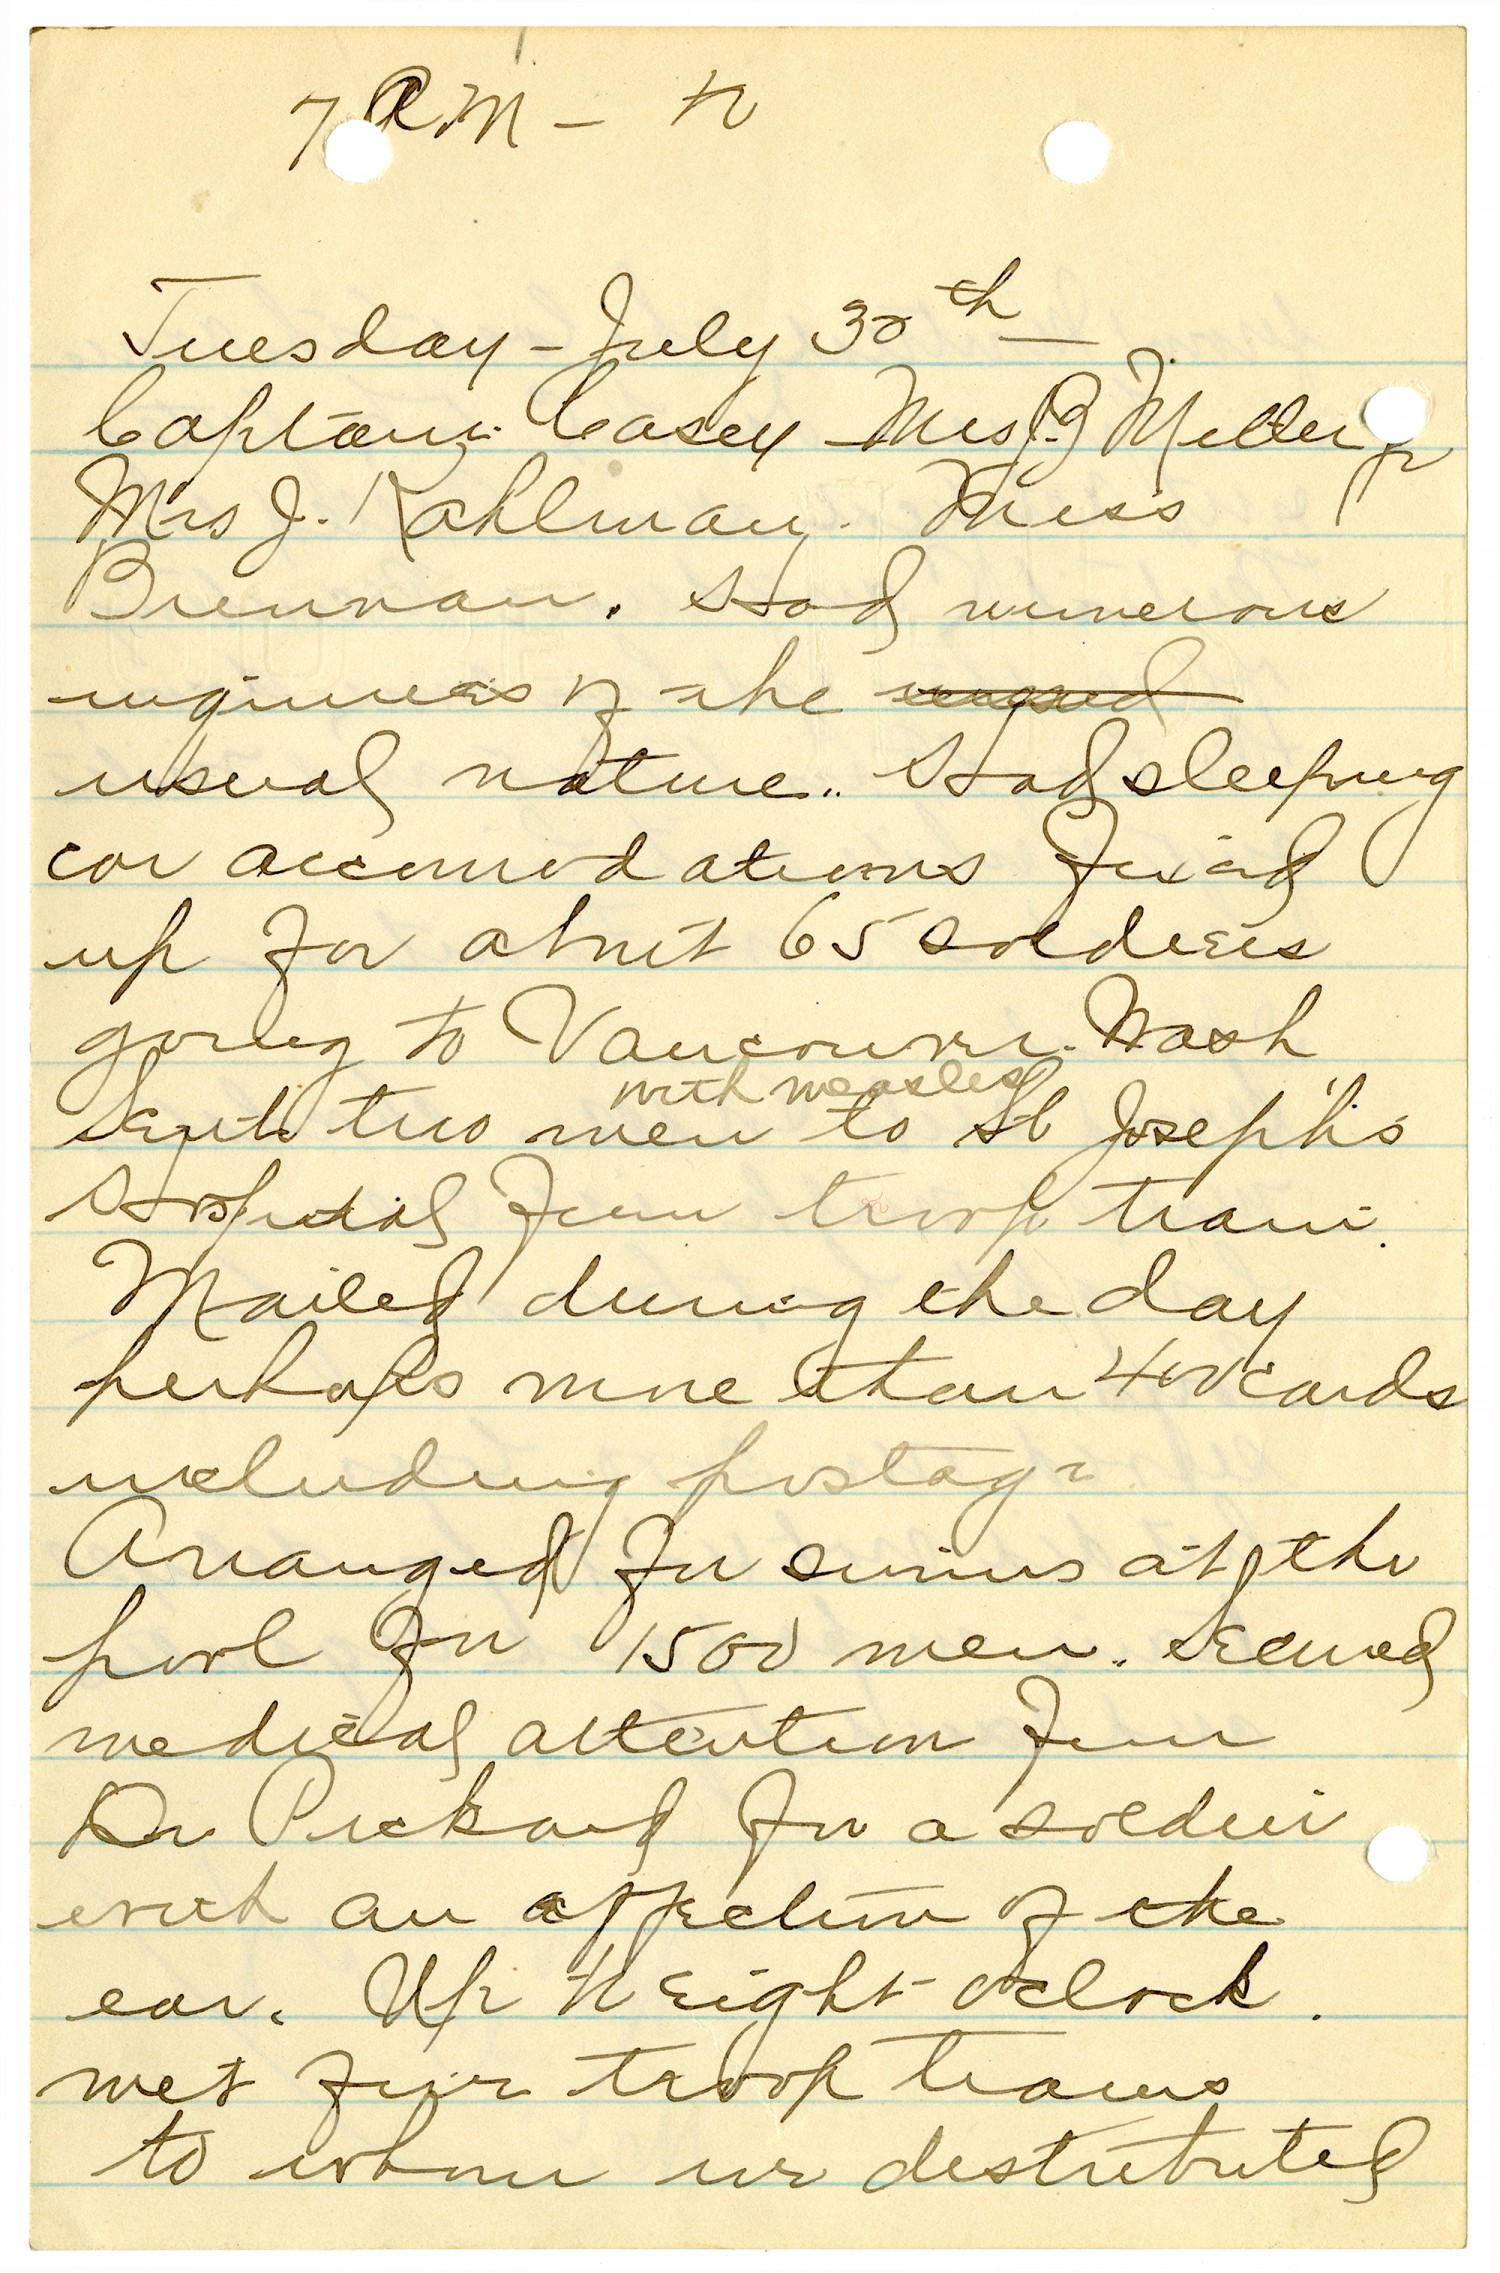 7 A.M - to
Tuesday - July 30th —
Captain Casey - Mrs J. Miller Jr
Mrs J. Kahlman. Miss
Brennan. Had numerous
inquiries of the
usual nature.. Had sleeping
car accomodations fixed
up for about 65 soldiers
going to Vancouver. Wash
with measles
Sent two men to St Joseph's
Hospital from troop train.
Mailed during the day
perhaps more than 400 cards
including postage
Arranged for swims at the
pool for 1500 men. Secured
medical attention from
Dr Pickard for a soldier
with an affection of the
ear. Up to eight o'clock.
met four troop trains
to whom we distributed